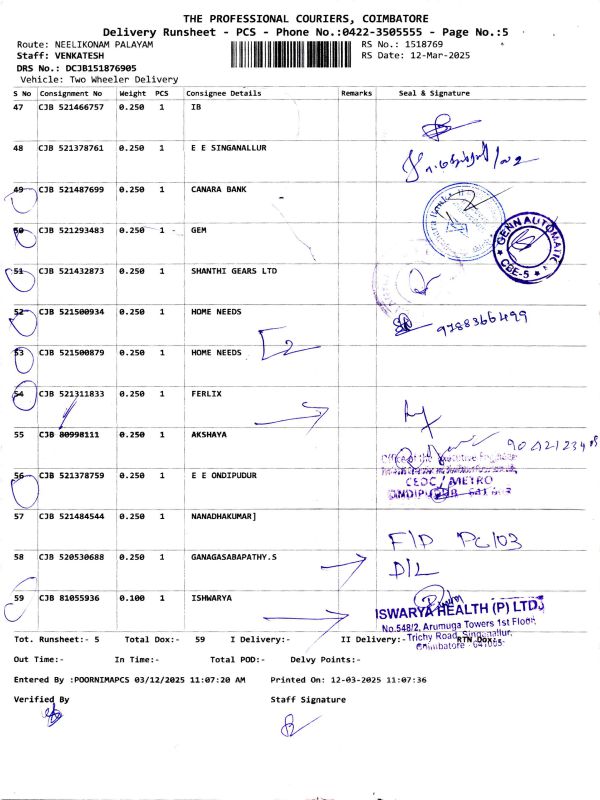 THE PROFESSIONAL COURIERS, COIMBATORE
Delivery Runsheet - PCS - Phone No.:0422-3505555 - Page No.:5
Route: NEELIKONAM PALAYAM RS No.: 1518769
Staff: VENKATESH RS Date: 12-Mar-2025
DRS No.: DCJB151876905
Vehicle: Two Wheeler Delivery
S No Consignment No Weight PCS Consignee Details Remarks Seal & Signature
47 CJB 521466757 0.250 1 IB
48 CJB 521378761 0.250 1 E E SINGANALLUR
49 CJB 521487699 0.250 1 CANARA BANK
50 CJB 521293483 0.250 1 GEM
GENN AUTOMAIK
CBE-5
51 CJB 521432873 0.250 1 SHANTHI GEARS LTD
52 CJB 521500934 0.250 1 HOME NEEDS 9788366499
53 CJB 521500879 0.250 1 HOME NEEDS
2
54 CJB 521311833 0.250 1 FERLIX
55 CJB 80998111 0.250 1 AKSHAYA
Office of the Executive Engineer
56 CJB 521378759 0.250 1 E E ONDIPUDUR
CEDC / METRO
57 CJB 521484544 0.250 1 NANADHAKUMAR]
F/D PC/03
58 CJB 520530688 0.250 1 GANAGASABAPATHY.S
D/L
59 CJB 81055936 0.100 1 ISHWARYA
ISWARYA HEALTH (P) LTD.,
No.548/2, Arumuga Towers 1st Floor,
Trichy Road, Singanallur,
Coimbatore - 641005.
Tot. Runsheet:- 5 Total Dox:- 59 I Delivery:- II Delivery:- RTN Dox:-
Out Time:- In Time:- Total POD:- Delvy Points:-
Entered By :POORNIMAPCS 03/12/2025 11:07:20 AM Printed On: 12-03-2025 11:07:36
Verified By Staff Signature